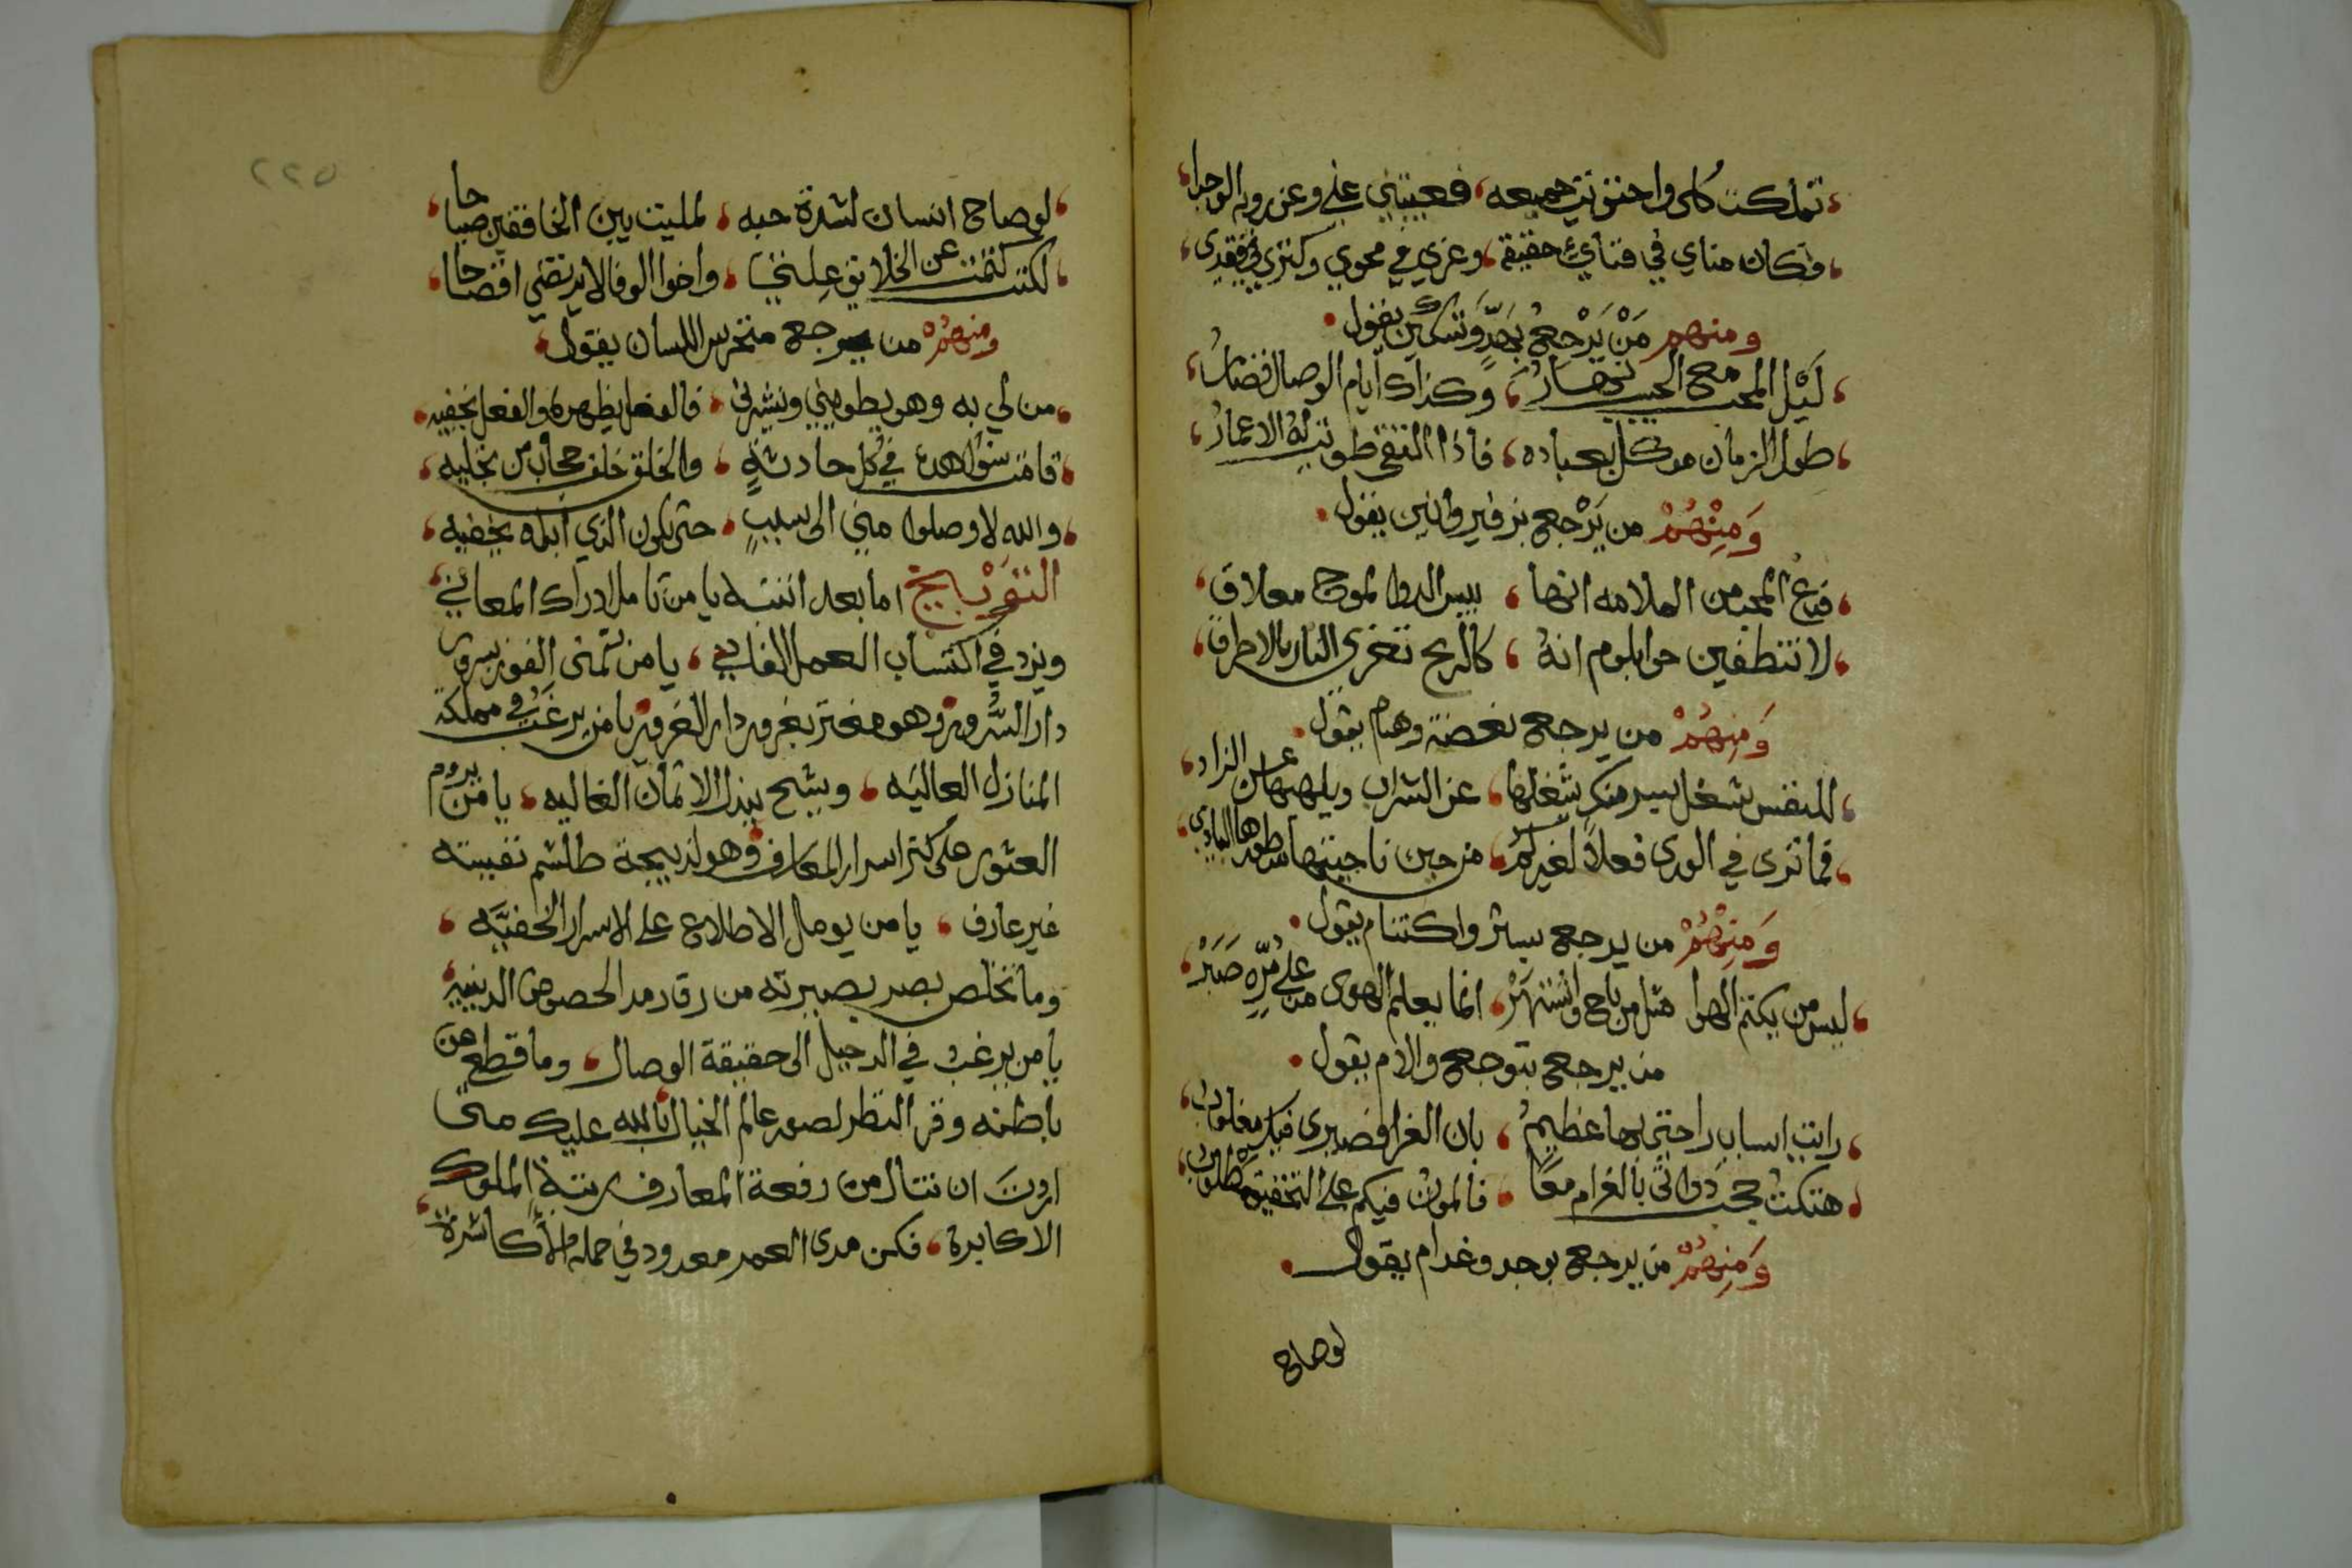 تملكت كلي واحتويت جميعه فغيبتني عني وعن رويه الوجدا
فكان مناي في فناي حقيقة وعزي في محوي وكنزي في فقدي
ومنهم مَنْ يَرْجِعُ بَهدٍّ وَتسكين يقول
لَيْل المحب مع الحبيب نهارُ وكذاك أيام الوصال قصارُ
طول الزمان موكل بعباده فاذا التقى طويت له الاعمارُ
وَمِنْهُمْ من يَرْجع بزفير وانين يقول
فدع المحب من الملامه انها بيس الدوا لموجع مقلاق
لا تطفين جوا بلوم انهُ كالريح تغري النار بالاحراق
وَمِنهُمْ من يرجع بغصة وهيام يقول
للنفس شغل بسير منك يشغلها عن الشراب ويلهيها عن الزاد
فما ترى في الورى فعلاً لغيركمُ من حين ناجيتها سطورها البادي
وَمِنْهُمْ من يرجع بستر واكتتام يقول
ليس من يكتم الهوا مثل من باح واشتهرْ انما يعلم الهوى من على مُرِّهِ صَبَرْ
من يرجع بتوجع والام يقول
رايت اسباب راحتي بها عظيمُ بان العزا فصبري فيك مغلوب
هتكت حجب ذواتي بالغرام معًا فالموت فيكم على التحقيق مطلوب
وَمِنهُمْ من يرجع بوجد وغرام يقول
لوصاح
٢٢٥
لو صاح انسان لشدة حبه لمليت بين الخافقين صياحا
لكنني كتمت عن الخلايق علتي واخوا الوفا لا يرتضي افضاحا
ومنهُمْ من يرجع متخرس اللسان يقول
من لي به وهو يطويني وينشرني فالفعل يظهره والفعل يخفيه
قامت شواهده في كل حادثةٍ والخلق خلف حجاب من تجليه
والله لا وصلوا مني الى سببٍ حتى يكون الذي ابداه يخفيه
اما بعد انتبه يا من تامل ادراك المعاني
ويزد في اكتساب العمل الفاني يا من تمنى الفوز بسرور
دار السُّرور وهو مغتر بغرور دار الغرور يا من يرغب في مملكة
المنازل العاليَه ويشح ببذل الاثمان الغاليه يا من يروم
العثور على كنز اسرار المعارف وهو لذبيحة طلسم نفسه
غير عارف يا من يومل الاطلاع على الاسرار الخفيَّه
وما تخلص بصر بصيرته من رق رمد الدنيه
يا من يرغب في الدخيل الى حقيقة الوصال وما قطع من
باطنه وقر النظر لصور عالم الخيال بالله عليك متى
اردت ان تنال من رفعة المعارف رتبة الملوك
الاكابرة فكن مدى العمر معدود في جملة الاكاشرة